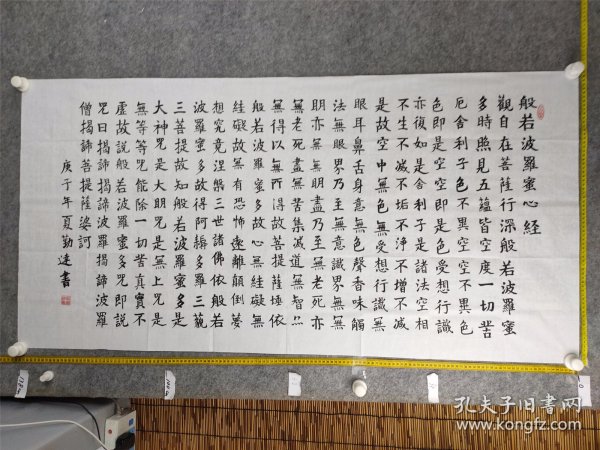 般若波羅蜜心經
觀自在菩薩行深般若波羅蜜
多時照見五蘊皆空度一切苦
厄舍利子色不異空空不異色
色即是空空即是色受想行識
亦復如是舍利子是諸法空相
不生不滅不垢不淨不增不減
是故空中無色無受想行識無
眼耳鼻舌身意無色聲香味觸
法無眼界乃至無意識界無無
明亦無無明盡乃至無老死亦
無老死盡無苦集滅道無智亦
無得以無所得故菩提薩埵依
般若波羅蜜多故心無絓礙無
絓礙故無有恐怖遠離顛倒夢
想究竟涅槃三世諸佛依般若
波羅蜜多故得阿耨多羅三藐
三菩提故知般若波羅蜜多是
大神咒是大明咒是無上咒是
無等等咒能除一切苦真實不
虛故說般若波羅蜜多咒即說
咒曰揭諦揭諦波羅揭諦波羅
僧揭諦菩提薩婆訶
庚子年夏勤書
孔夫子旧書网
www.kongfz.com